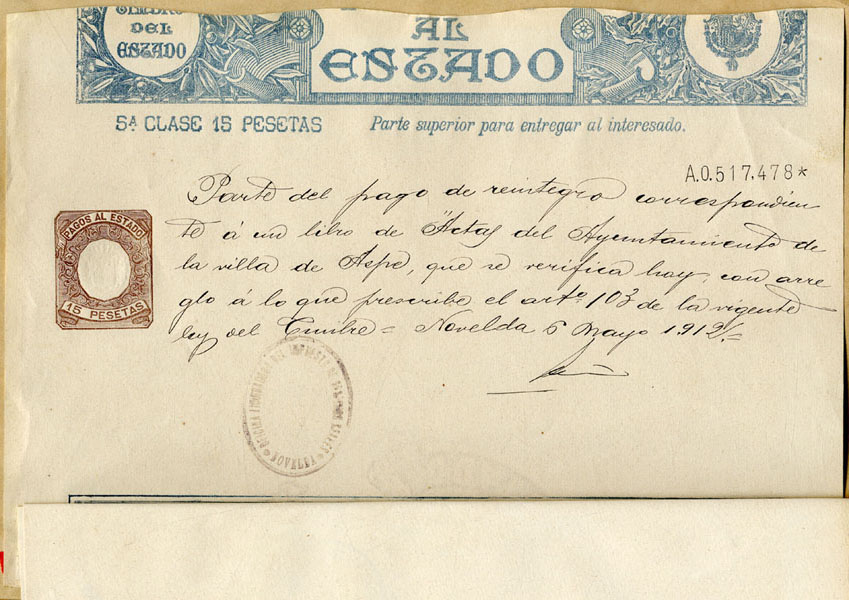 TIMBRE
DEL
ESTADO
AL
ESTADO
5ª CLASE 15 PESETAS
Parte superior para entregar al interesado.
A.0.517,478*
PAGOS AL ESTADO
15 PESETAS
Parte del pago de reintegro correspondien-
te á un libro de Actas del Ayuntamiento de
la villa de Aspe, que se verifica hoy, con arre
glo á lo que prescribe el artº 103 de la vigente
ley del Timbre = Novelda 6 Mayo 1912 =
NOVELDA